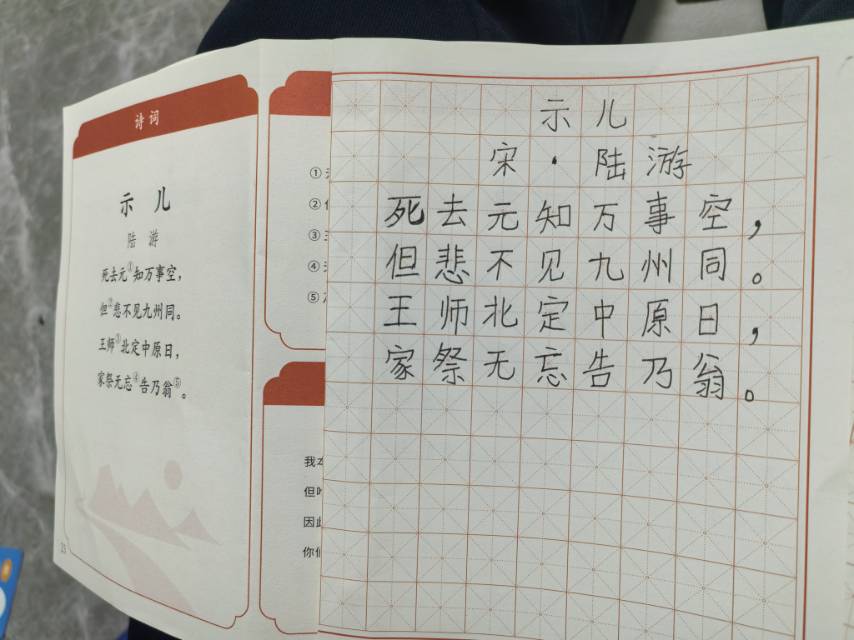 诗词
示 儿
陆 游
死去元①知万事空，
但②悲不见九州同。
王师③北定中原日，
家祭无忘④告乃翁⑤。
①
②
③
④
⑤
我本
但
因此
你们
示儿
宋·陆游
死去元知万事空，
但悲不见九州同。
王师北定中原日，
家祭无忘告乃翁。